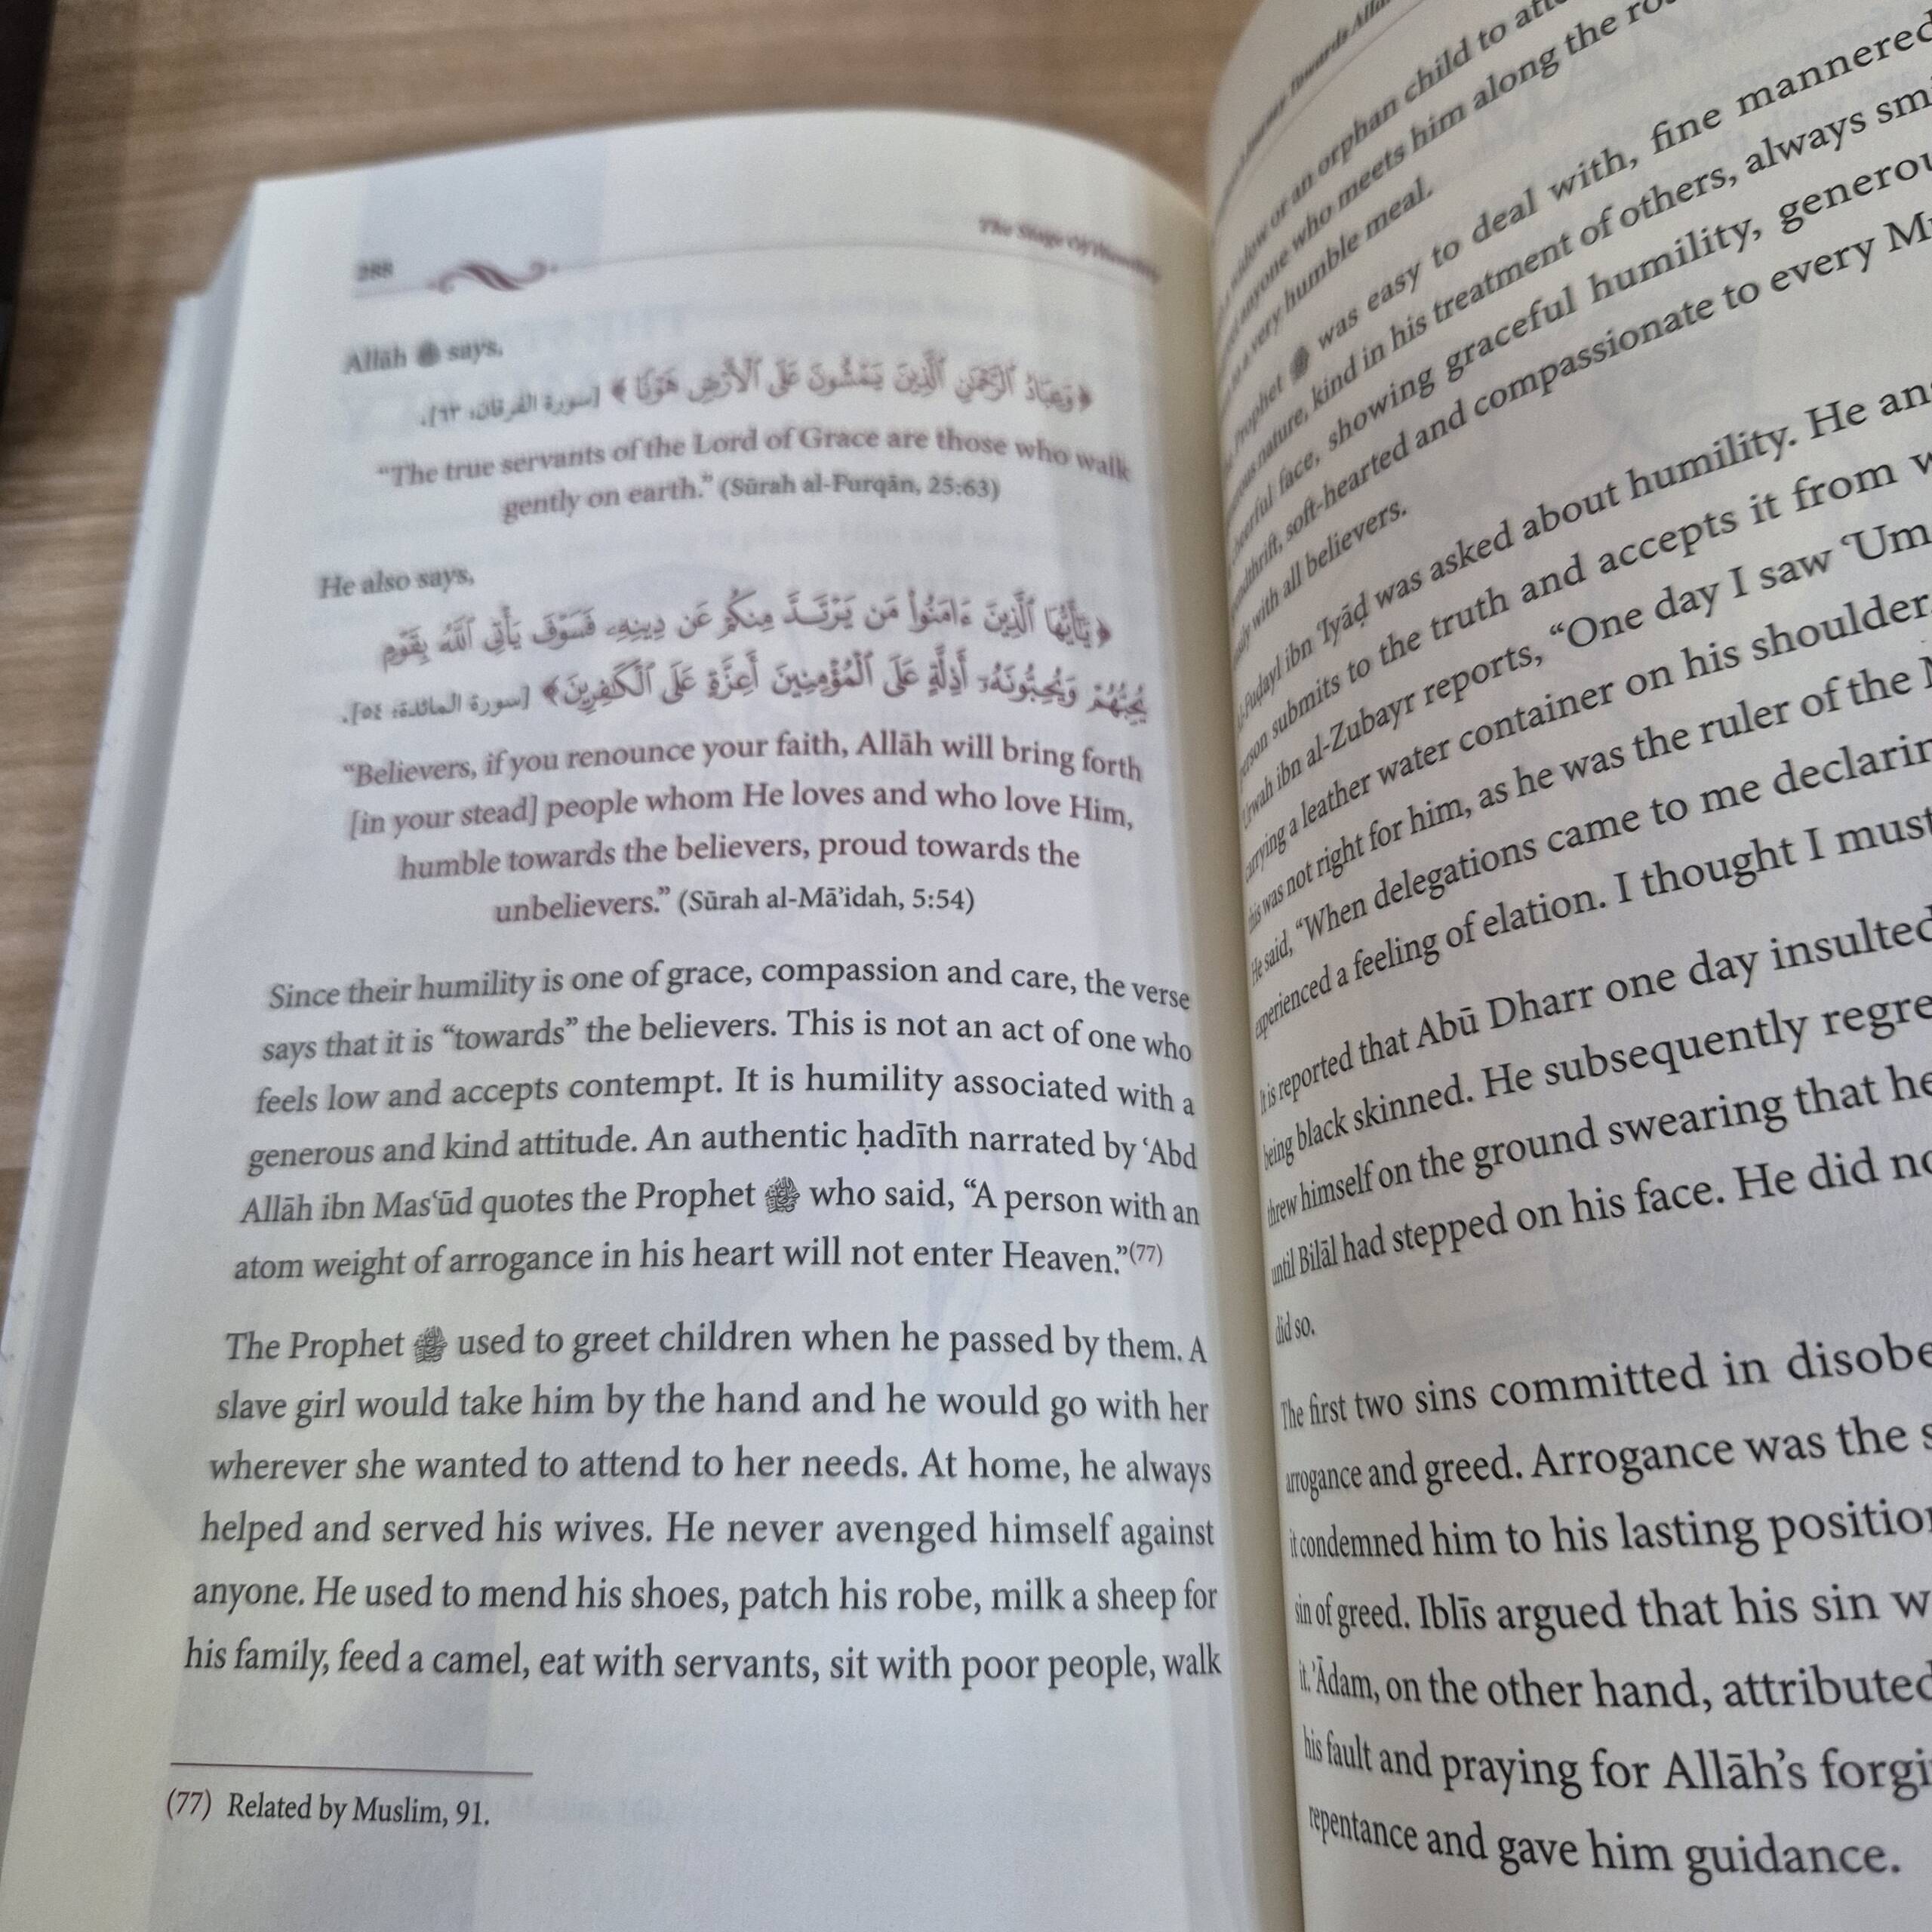 288
The Stage Of Humility
Allāh ﷻ says,
﴿وَعِبَادُ ٱلرَّحْمَٰنِ ٱلَّذِينَ يَمْشُونَ عَلَى ٱلْأَرْضِ هَوْنًا﴾ [سورة الفرقان، ٦٣].
“The true servants of the Lord of Grace are those who walk
gently on earth.” (Sūrah al-Furqān, 25:63)
He also says,
﴿يَٰٓأَيُّهَا ٱلَّذِينَ ءَامَنُوا۟ مَن يَرْتَدَّ مِنكُمْ عَن دِينِهِۦ فَسَوْفَ يَأْتِى ٱللَّهُ بِقَوْمٍ
يُحِبُّهُمْ وَيُحِبُّونَهُۥٓ أَذِلَّةٍ عَلَى ٱلْمُؤْمِنِينَ أَعِزَّةٍ عَلَى ٱلْكَٰفِرِينَ﴾ [سورة المائدة، ٥٤].
“Believers, if you renounce your faith, Allāh will bring forth
[in your stead] people whom He loves and who love Him,
humble towards the believers, proud towards the
unbelievers.” (Sūrah al-Mā’idah, 5:54)
Since their humility is one of grace, compassion and care, the verse
says that it is “towards” the believers. This is not an act of one who
feels low and accepts contempt. It is humility associated with a
generous and kind attitude. An authentic ḥadīth narrated by ‘Abd
Allāh ibn Mas‘ūd quotes the Prophet ﷺ who said, “A person with an
atom weight of arrogance in his heart will not enter Heaven.”(77)
The Prophet ﷺ used to greet children when he passed by them. A
slave girl would take him by the hand and he would go with her
wherever she wanted to attend to her needs. At home, he always
helped and served his wives. He never avenged himself against
anyone. He used to mend his shoes, patch his robe, milk a sheep for
his family, feed a camel, eat with servants, sit with poor people, walk
(77) Related by Muslim, 91.
Towards Allāh
widow or an orphan child to
anyone who meets him along the
to a very humble meal.
Prophet ﷺ was easy to deal with, fine mannered
nature, kind in his treatment of others, always
cheerful face, showing graceful humility,
soft-hearted and compassionate to every
with all believers.
al-Fuḍayl ibn ‘Iyāḍ was asked about humility. He
person submits to the truth and accepts it from
‘Urwah ibn al-Zubayr reports, “One day I saw
carrying a leather water container on his shoulder.
this was not right for him, as he was the ruler of the
He said, “When delegations came to me
experienced a feeling of elation. I thought I must
It is reported that Abū Dharr one day insulted
being black skinned. He subsequently
threw himself on the ground swearing that he
until Bilāl had stepped on his face. He did
did so.
The first two sins committed in
arrogance and greed. Arrogance was the
it condemned him to his lasting
sin of greed. Iblīs argued that his sin
it. ’Ādam, on the other hand, attributed
his fault and praying for Allāh’s
repentance and gave him guidance.